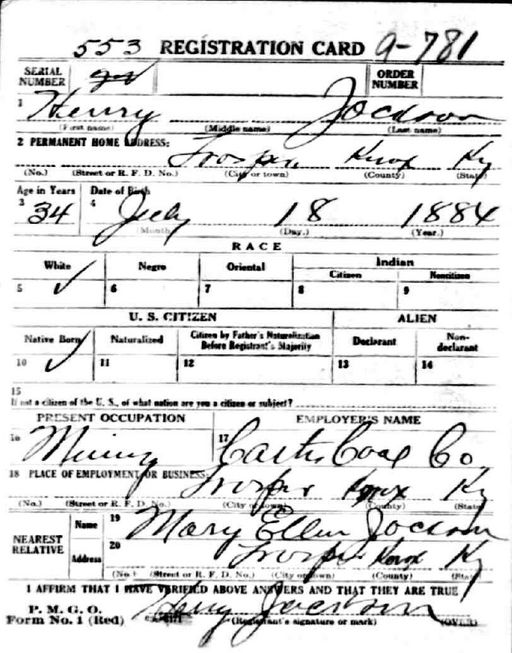 553 REGISTRATION CARD 9-781
SERIAL NUMBER ORDER NUMBER
1 Henry Jackson
(First name) (Middle name) (Last name)
2 PERMANENT HOME ADDRESS:
Trosper Knox Ky
(No.) (Street or R. F. D. No.) (City or town) (County) (State)
Age in Years Date of Birth
3 34 4 July 18 1884
(Month.) (Day.) (Year.)
RACE
White Negro Oriental Indian
Citizen Noncitizen
5 ✓ 6 7 8 9
U. S. CITIZEN ALIEN
Native Born Naturalized Citizen by Father's Naturalization Before Registrant's Majority Declarant Non-declarant
10 ✓ 11 12 13 14
15
If not a citizen of the U. S., of what nation are you a citizen or subject?
PRESENT OCCUPATION EMPLOYER'S NAME
16 Mining 17 Coal Co.
18 PLACE OF EMPLOYMENT OR BUSINESS:
Trosper Knox Ky
(No.) (Street or R. F. D. No.) (City or town) (County) (State)
NEAREST RELATIVE
Name 19 Mary Ellen Jackson
Address 20 Trosper Knox Ky
(No.) (Street or R. F. D. No.) (City or town) (County) (State)
I AFFIRM THAT I HAVE VERIFIED ABOVE ANSWERS AND THAT THEY ARE TRUE
P. M. G. O.
Form No. 1 (Red) Henry Jackson
(Registrant's signature or mark) (OVER)